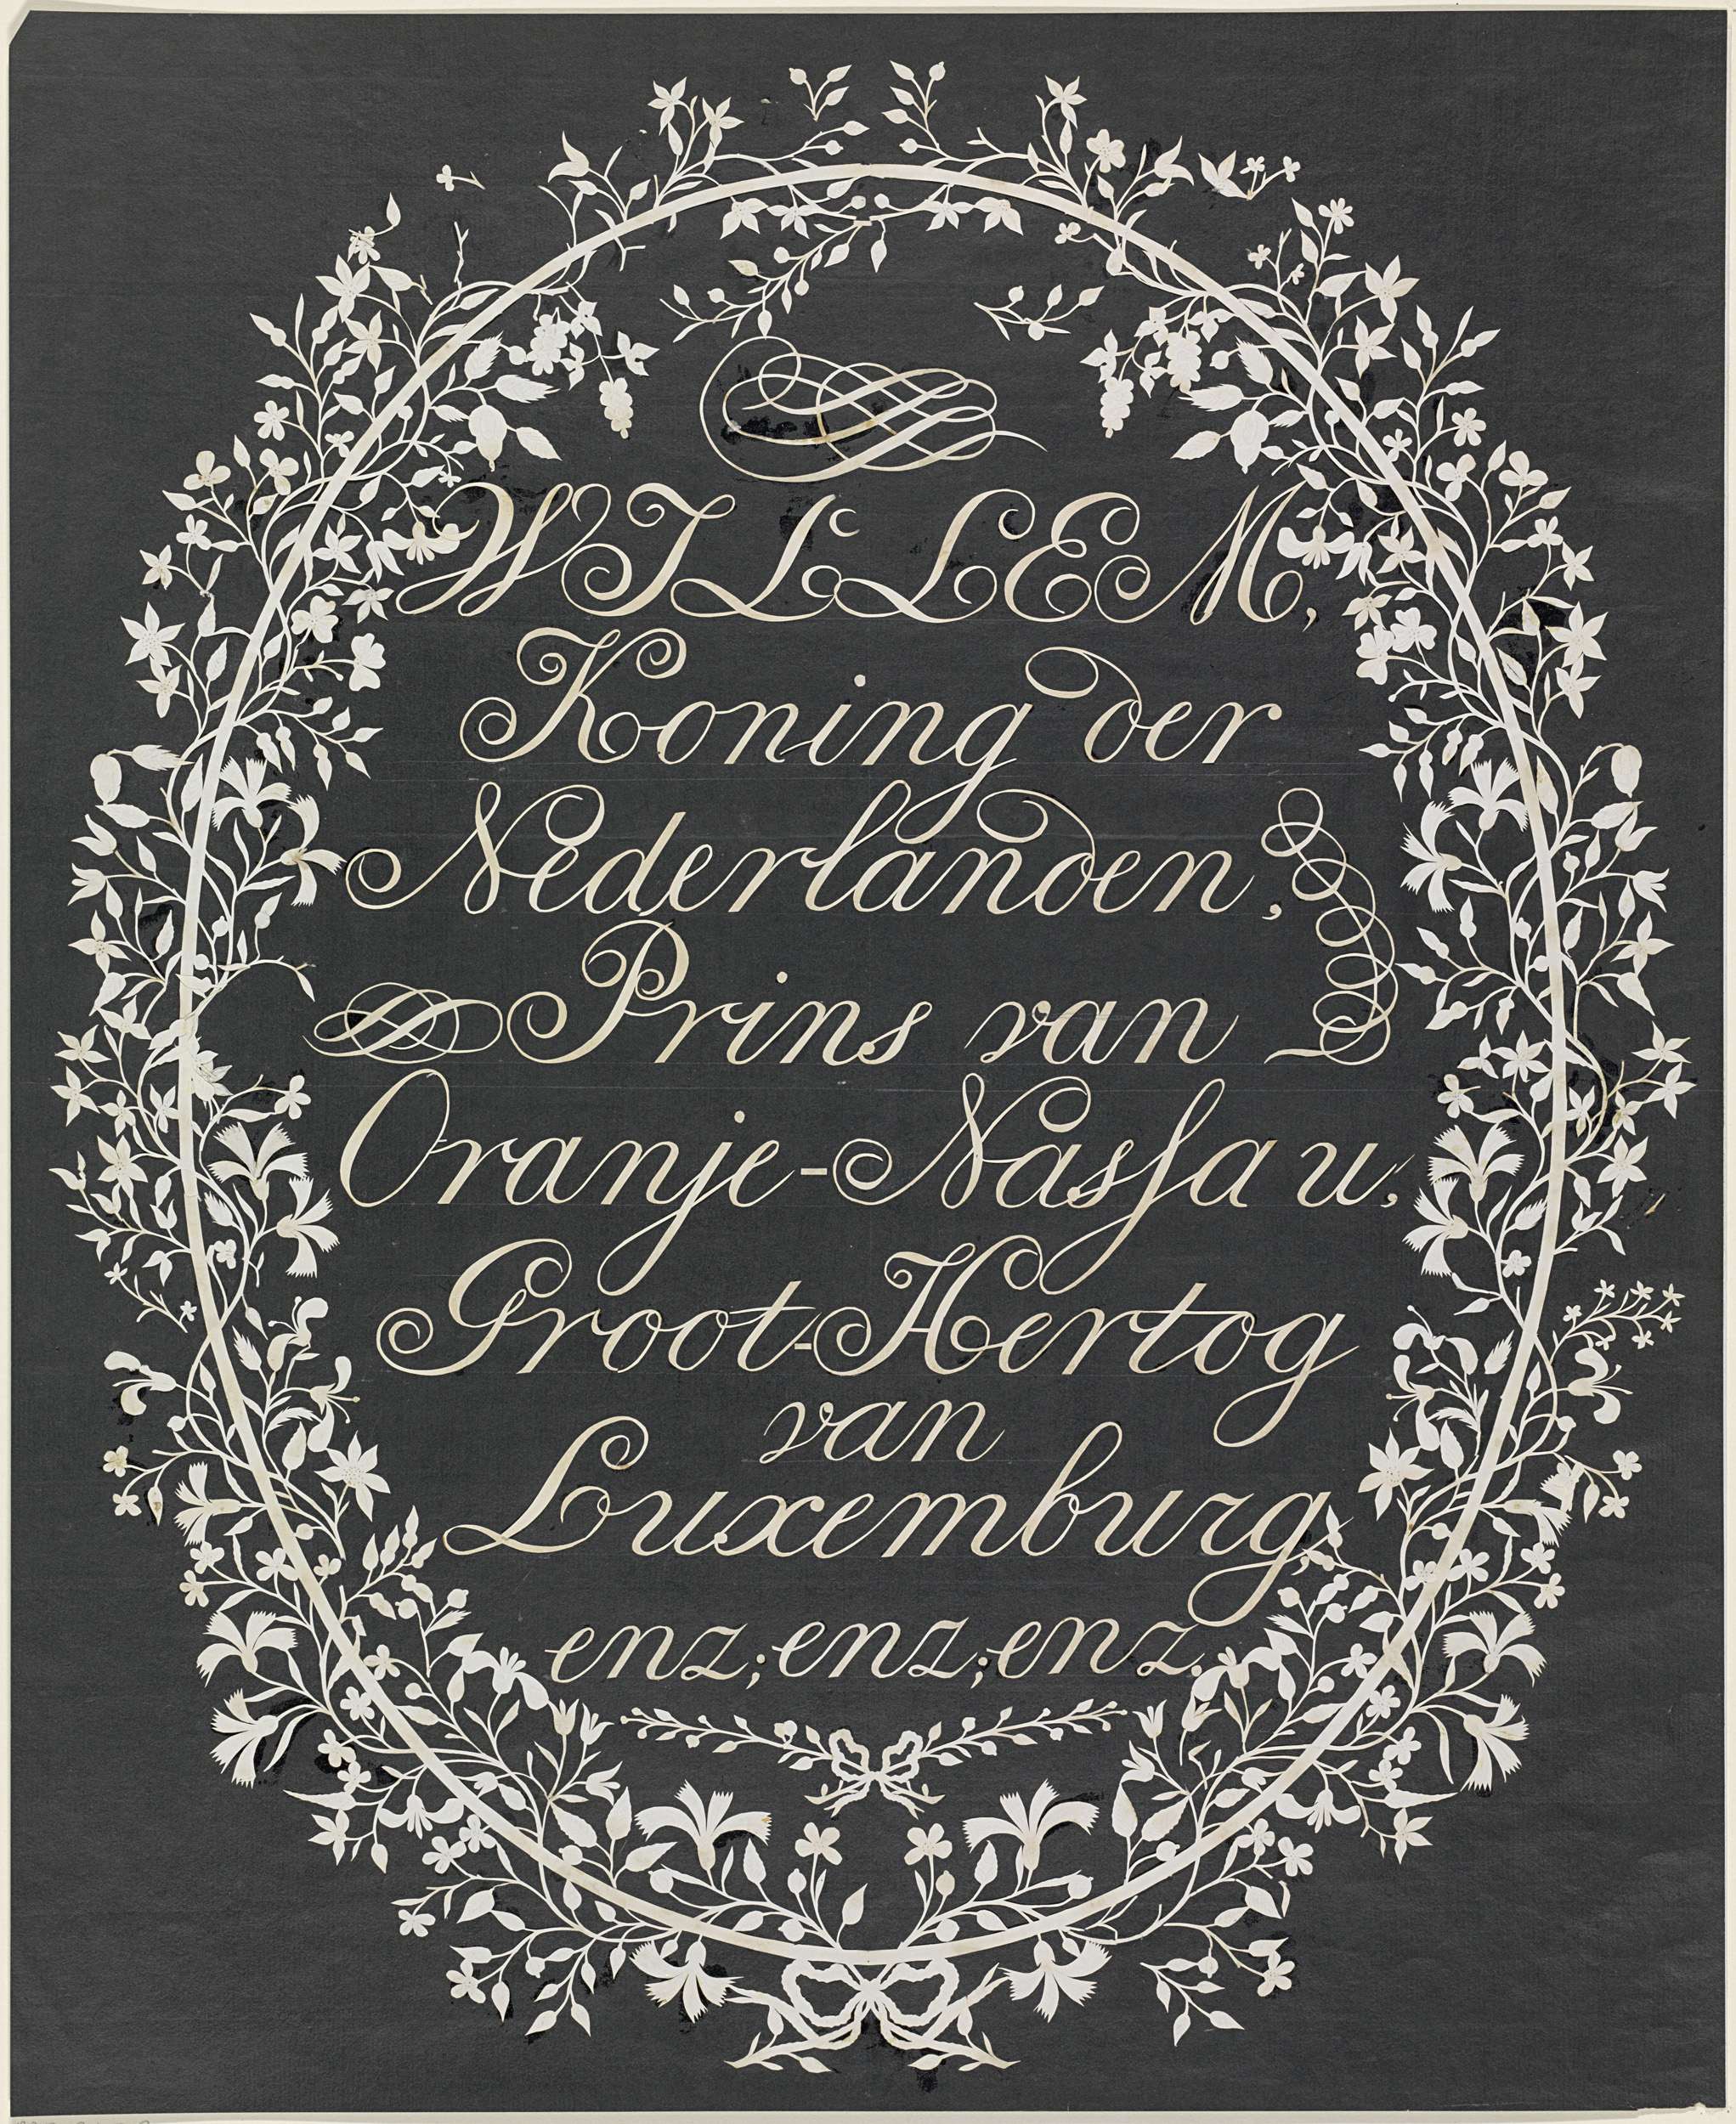 WILLEM,
Koning der
Nederlanden,
Prins van
Oranje-Nasſau,
Groot-Hertog
van
Luxemburg
enz;enz;enz.